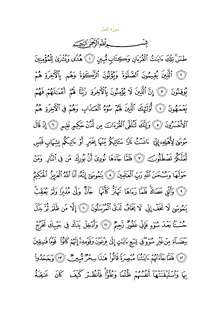 سورة النمل
بِسْمِ اللَّهِ الرَّحْمَٰنِ الرَّحِيمِ
طسٓ تِلْكَ ءَايَٰتُ الْقُرْءَانِ وَكِتَابٍ مُّبِينٍ ١ هُدًى وَبُشْرَىٰ لِلْمُؤْمِنِينَ
٢ الَّذِينَ يُقِيمُونَ الصَّلَوٰةَ وَيُؤْتُونَ الزَّكَوٰةَ وَهُم بِالْأَخِرَةِ هُمْ
يُوقِنُونَ ٣ إِنَّ الَّذِينَ لَا يُؤْمِنُونَ بِالْأَخِرَةِ زَيَّنَّا لَهُمْ أَعْمَٰلَهُمْ فَهُمْ
يَعْمَهُونَ ٤ أُوْلَٰٓئِكَ الَّذِينَ لَهُمْ سُوٓءُ الْعَذَابِ وَهُمْ فِي الْأَخِرَةِ هُمُ
الْأَخْسَرُونَ ٥ وَإِنَّكَ لَتُلَقَّى الْقُرْءَانَ مِن لَّدُنْ حَكِيمٍ عَلِيمٍ ٦ إِذْ قَالَ
مُوسَىٰ لِأَهْلِهِ إِنِّي ءَانَسْتُ نَارًا سَـَٔاتِيكُم مِّنْهَا بِخَبَرٍ أَوْ ءَاتِيكُم بِشِهَابٍ قَبَسٍ
لَّعَلَّكُمْ تَصْطَلُونَ ٧ فَلَمَّا جَآءَهَا نُودِيَ أَنۢ بُورِكَ مَن فِي النَّارِ وَمَنْ
حَوْلَهَا وَسُبْحَٰنَ اللَّهِ رَبِّ الْعَٰلَمِينَ ٨ يَٰمُوسَىٰٓ إِنَّهُۥٓ أَنَا اللَّهُ الْعَزِيزُ الْحَكِيمُ
٩ وَأَلْقِ عَصَاكَ فَلَمَّا رَءَاهَا تَهْتَزُّ كَأَنَّهَا جَآنٌّ وَلَّىٰ مُدْبِرًا وَلَمْ يُعَقِّبْ
يَٰمُوسَىٰ لَا تَخَفْ إِنِّي لَا يَخَافُ لَدَيَّ الْمُرْسَلُونَ ١٠ إِلَّا مَن ظَلَمَ ثُمَّ بَدَّلَ
حُسْنًۢا بَعْدَ سُوٓءٍ فَإِنِّي غَفُورٌ رَّحِيمٌ ١١ وَأَدْخِلْ يَدَكَ فِي جَيْبِكَ تَخْرُجْ
بَيْضَآءَ مِنْ غَيْرِ سُوٓءٍ فِي تِسْعِ ءَايَٰتٍ إِلَىٰ فِرْعَوْنَ وَقَوْمِهِۦٓ إِنَّهُمْ كَانُوا قَوْمًا فَٰسِقِينَ
١٢ فَلَمَّا جَآءَتْهُمْ ءَايَٰتُنَا مُبْصِرَةً قَالُوا هَٰذَا سِحْرٌ مُّبِينٌ ١٣ وَجَحَدُوا
بِهَا وَاسْتَيْقَنَتْهَآ أَنفُسُهُمْ ظُلْمًا وَعُلُوًّا فَانظُرْ كَيْفَ كَانَ عَٰقِبَةُ